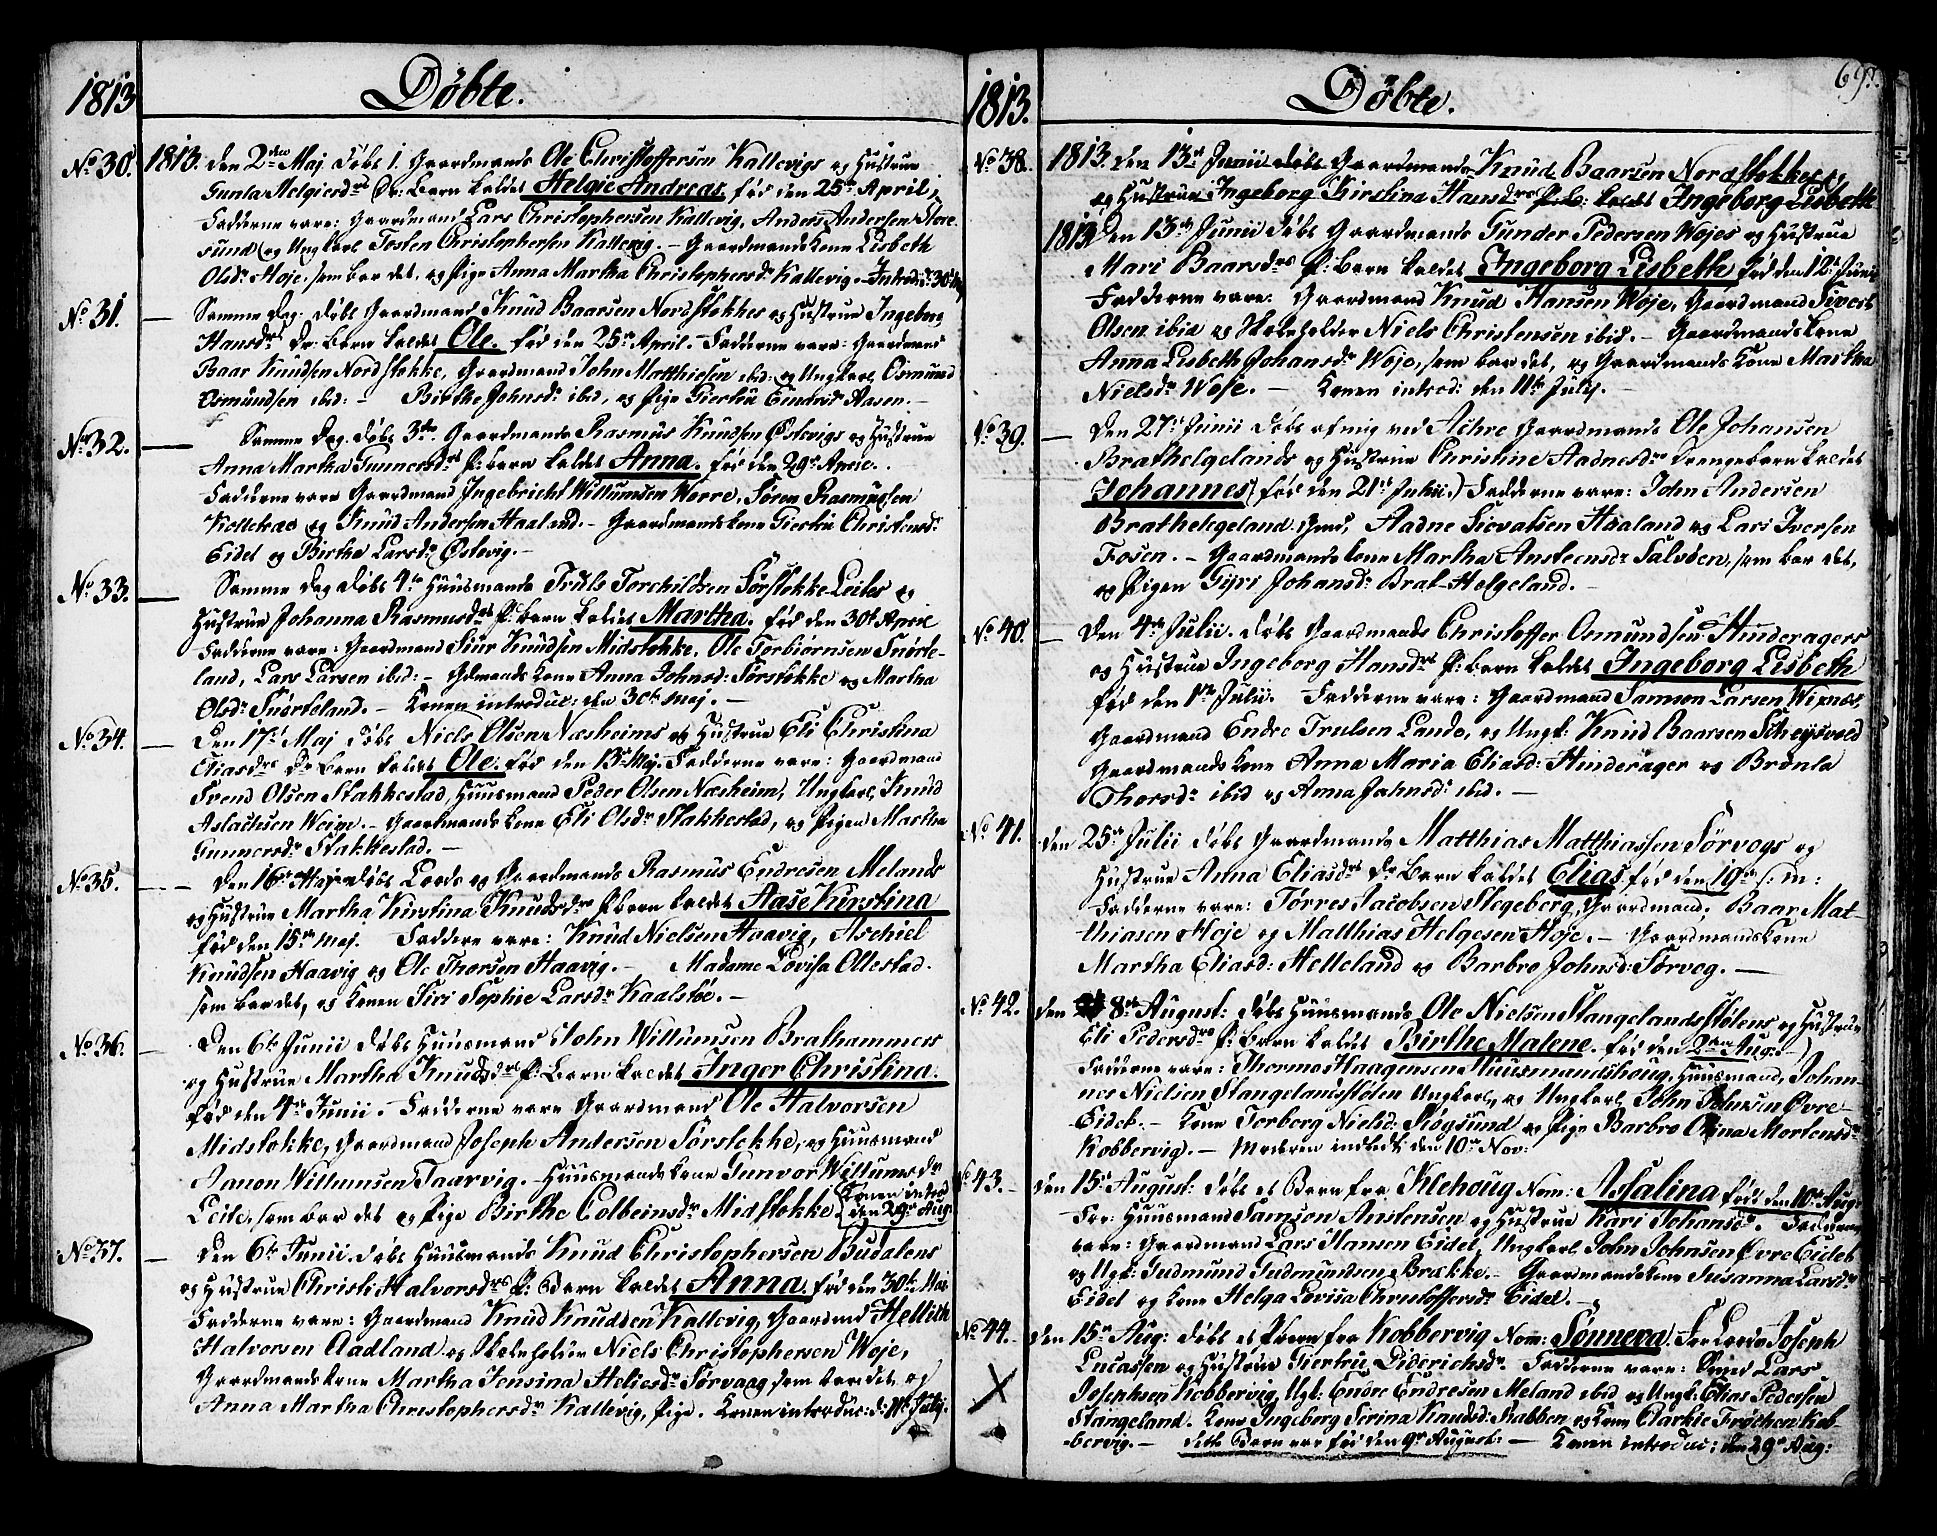 1813 Döbte.
No 30. 1813. den 2den Maj döbt 1. Gaardmands Ole Christoffersen Kallevigs og Hustrue
Gunla Helgiesdr. Dr: Barn kaldet Helgie Andreas, fød den 25de April;
Fadderne vare: Gaardmand Lars Christophersen Kallevig, Anders Andersen Store-
sund og Ungkarl Tosten Christophersen Kallevig. - Gaardmandskone Lisbeth
Olsdr Høje, som bar det, og Pige Anna Martha Christophersdr Kallevig. - Introd:
No 31. Samme Dag. døbt Gaardmand Knud Baarsen Nordstokkes og Hustrue Ingeborg
Hansdr Dr: Barn kaldet Ole. fød den 25de April. - Fadderne vare: Gaardmand
Baar Knudsen Nordstokke, Gaardmand John Matthiesen ibid: og Ungkarl Osmund
Osmundsen ibid: - Birthe Johnsdr ibid, og Pige Giertru Aasen. -
No 32. Samme Dag. døbt 3die. Gaardmands Rasmus Knudsen Østevigs og Hustrue
Anna Martha Gunnersdr P: barn kaldet Anna. fød den 29de April.
Fadderne vare Gaardmand Ingebricht Willumsen Worre, Søren Rasmussen
og Knud Andersen Haaland. - Gaardmandskone Giertru Christensdr
Eidet og Birtha Larsdr Østevig. -
No 33. Samme Dag døbt 4de Huusmands Truls Torchildsen Sørstokke-Leites og
Hustrue Johanna Rasmusdr P: barn kaldet Martha. fød den 30te April
Fadderne vare: Gaardmand Siur Knudsen Midstokke, Ole Torbiørnsen Snørte-
land, Lars Larsen ibid: - Gdmands kone Anna Johnsd: Sørstokke og Martha
Olsdr Snørteland. - Konen introduc: den 30te Maj. -
No 34. Den 17de Maj døbt Niels Olsen Næsheims og Hustrue Eli Christina
Eliasdr Dr barn kaldet Ole. fød den 13de Maj. Fadderne vare: Gaardmand
Svend Olsen Stakkestad, Huusmand Peder Olsen Næsheim, Ungkarl Knud
Aslachsen - Gaardmandskone Eli Olsdr Stakkestad, og Pigen Martha
Gunnersdr Stakkestad. -
No 35. Den 16de Maj døbt Lods og Gaardmands Rasmus Endresen Melands
og Hustrue Martha Kirstina Knudsdr P barn kaldet Aase Kirstina
fød den 15de Maj. Faddere vare: Knud Nielsen Haavig, Aschiel
Knudsen Haavig og Ole Thorsen Haavig. - Madame Lovisa Ollestad.
som bar det, og Konen Siri Sophie Larsdr Kaalstøe. -
No 36. Den 6te Junii døbt Huusmands John Willumsen Brathammers
og Hustrue Martha Knudsdr P: barn kaldet Inger Christina.
fød den 4de Junii. - Fadderne vare Gaardmand Ole Halvorsen
Midstokke, Gaardmand Joseph Andersen Sørstokke, og Huusmand
Janon Willumsen Taarvig. - Huusmandskone Gunvor Willumsdr
Leite, som bar det og Pige Birthe Colbeinsdr Midstokke (Konen introd
den 29de Aug:
No 37. Den 6te Junii. døbt Huusmands Knud Christophersen Budalens
og Hustrue Christi Halvorsdr P: Barn kaldet Anna. fød den 30te Mai
Fadderne vare: Gaardmand Knud Knudsen Kallevig, Gaardmd Hellich
Halvorsen Aadland og Skoleholder Niels Christophersen Woje,
Gaardmandskone Martha Jensina Heliesdr Sørvaag som bar det og
Anna Martha Christophersdr Kallevig, Pige. Konen introduc: d: 11te July.
1813. Döbte. 697.
No 38. 1813. den 13de Junii døbt Gaardmands Knud Baarsen Nordstokkes
og Hustrue Ingeborg Kirstina Hansdr P: b: kaldet Ingeborg Lisbeth
1813 Den 13de Junii døbt Gaardmands Gunder Pedersen Wojes og Hustrue
Mari Baarsdr P: Barn kaldet Ingeborg Lisbeth, fød den 12te Junii
Fadderne vare: Gaardmand Knud Hansen Woje, Gaardmand Sivert
Olsen ibid og Skoleholder Niels Christensen ibid. - Gaardmandskone
Anna Lisbeth Johansdr Woje, som bar det, og Gaardmands Kone Martha
Nielsdr Woje. - Konen introd: den 11te July. -
No 39. Den 27de Junii døbt af mig ved Achre Gaardmands Ole Johansen
Brathelgelands og Hustrue Christine Aadnesdr Drengebarn kaldet
Johannes (fød den 21de Junii.) Fadderne vare: John Andersen
Brathelgeland Aadne Siovatsen Haaland og Lars Iversen
Fosen. - Gaardmandskone Martha Ansteensdr Salvøen, som bar det,
og Pigen Gyri Johansdr Brat-Helgeland. -
No 40. Den 4de Julii. døbt Gaardmands Christoffer Osmundsen Hinderagers
og Hustrue Ingeborg Hansdr P: barn kaldet Ingeborg Lisbeth
fød den 1ste Julii. Fadderne vare: Gaardmand Samson Larsen Wixnæs,
Gaardmand Endre Trulsen Lande, og Ungk: Knud Baarsen Scheisvold
Gaardmands kone Anna Maria Eliasd: Hinderager og Brønla
Thorsdr ibid og Anna Jahnsdr ibid. -
No 41. den 25de Julii døbt Gaardmands Matthias Matthiassen Sørvogs og
Hustrue Anna Eliasdr Dr Barn kaldet Elias fød den 19de s: m:
Fadderne vare: Tørres Jacobsen Stegeberg, Gaardmand, Baar Mat-
thiasen Høje og Matthias Helgesen Høje. - Gaardmandskone
Martha Eliasd: Helleland og Barbro Johnsd: Sørvog. -
No 42. den 8de August: døbt Huusmands Ole Nielsen Stangelandsstølens og Hustrue
Eli Pedersdr P: Barn kaldet Birthe Malene. fød den 2den Aug: -
Fadderne vare: Thormo Haagensen Huusmandshoug, Huusmand, Johan-
nes Nielsen Stangelandsstølen Ungkarl, og Ungkarl John Johnsen Øvre-
Eidet. - Kone Torberg Nielsd: Røgsund og Pige Barbro Olina Mortensdr
Kobbervig. - Moderen indledt: den 10de Nov:
No 43. den 15de August: døbt et Barn fra Klehoug Nom: Assalina fød: den 10de Aug:
For: Huusmand Samson Anstensen og Hustrue Kari Johansdr. Fadderne
vare: Gaardmand Lars Hansen Eidet, Ungkarl John Johnsen Øvre Eidet
og Ugk: Gudmund Gudmundsen Brække. - Gaardmandskone Susanna Larsdr
Eidet og kone Helga Lovisa Christoffersdr Eidet. -
No 44. den 15de Aug: døbt et Pbarn fra Kobbervig Nom: Sønneva. For: Lods Joseph
Lucassen og Hustrue Giertru Diderichsdr. Fadderne vare: Lars
Josephsen Kobbervig, Ugk: Endre Endresen Meland ibid og Ungk: Elias Pedersen
Stangeland. Kone Ingeborg Serina Knudsd: Stabben og Kone Clarkie Trøchen Kob-
bervig. - dette Barn var fød den 9de August: - Konen introduc: den 29de Aug: